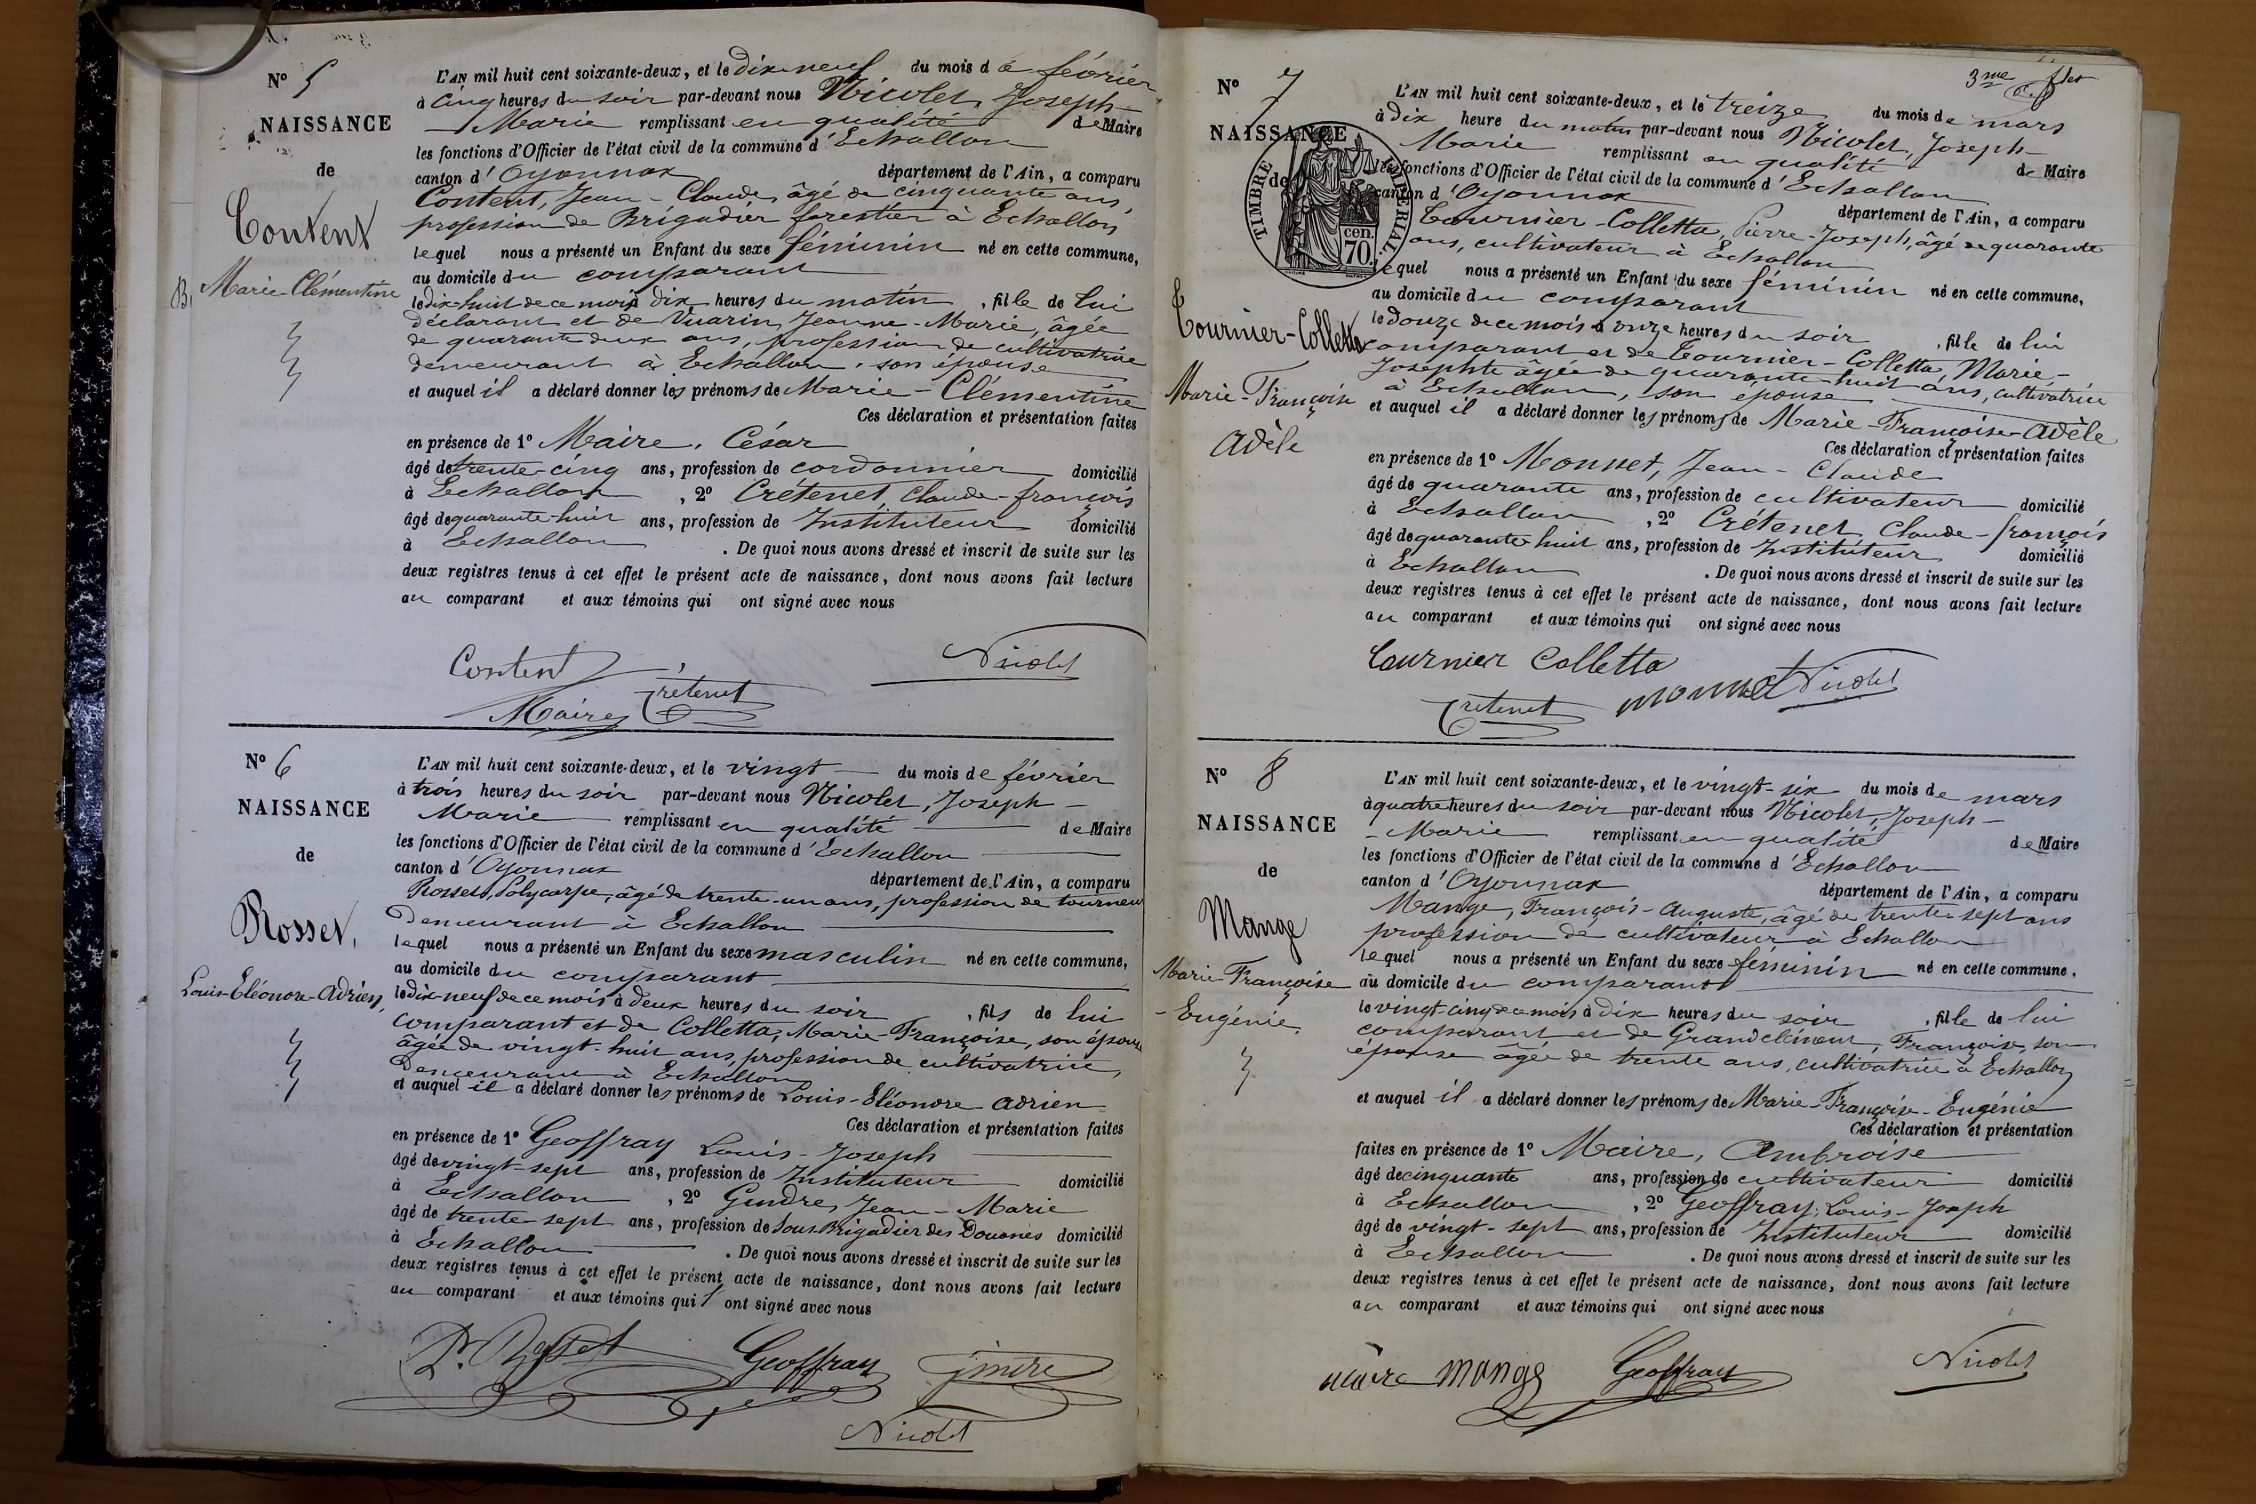 N° 5
NAISSANCE
de
Content
B. Marie-Clémentine
L'AN mil huit cent soixante-deux, et le Dix-neuf du mois de février
à cinq heures du soir par-devant nous Nicolet, Joseph-
Marie remplissant en qualité de Maire
les fonctions d'Officier de l'état civil de la commune d'Echallon
canton d'Oyonnax département de l'Ain, a comparu
Content, Jean-Claude, âgé de cinquante ans,
profession de Brigadier forestier à Echallon,
lequel nous a présenté un Enfant du sexe féminin né en cette commune,
au domicile du comparant
le dix-huit de ce mois à dix heures du matin, fille de lui
déclarant et de Vuarin, Jeanne-Marie, âgée
de quarante deux ans, profession de cultivatrice
demeurant à Echallon, son épouse
et auquel il a déclaré donner les prénoms de Marie-Clémentine
Ces déclaration et présentation faites
en présence de 1° Maire, César
âgé de trente-cinq ans, profession de cordonnier domicilié
à Echallon, 2° Crétenet, Claude-françois
âgé de quarante-huit ans, profession de Instituteur domicilié
à Echallon. De quoi nous avons dressé et inscrit de suite sur les
deux registres tenus à cet effet le présent acte de naissance, dont nous avons fait lecture
au comparant et aux témoins qui ont signé avec nous
Content
Nicolet
Crétenet
Maire
N° 6
NAISSANCE
de
Rosset,
Louis-Eléonore-Adrien,
L'AN mil huit cent soixante-deux, et le vingt du mois de février
à trois heures du soir par-devant nous Nicolet, Joseph-
Marie remplissant en qualité de Maire
les fonctions d'Officier de l'état civil de la commune d'Echallon
canton d'Oyonnax département de l'Ain, a comparu
Rosset, Polycarpe, âgé de trente-un ans, profession de tourneur
demeurant à Echallon
lequel nous a présenté un Enfant du sexe masculin né en cette commune,
au domicile du comparant
le dix-neuf de ce mois à deux heures du soir, fils de lui
comparant et de Colletta, Marie-Françoise, son épouse
âgée de vingt-huit ans, profession de cultivatrice,
demeurant à Echallon
et auquel il a déclaré donner les prénoms de Louis-Eléonore Adrien
Ces déclaration et présentation faites
en présence de 1° Geoffray Louis-Joseph
âgé de vingt-sept ans, profession de Instituteur domicilié
à Echallon, 2° Gindre, Jean-Marie
âgé de trente-sept ans, profession de Sous Brigadier des Douanes domicilié
à Echallon. De quoi nous avons dressé et inscrit de suite sur les
deux registres tenus à cet effet le présent acte de naissance, dont nous avons fait lecture
au comparant et aux témoins qui ont signé avec nous
P. Rosset Geoffray gindre
Nicolet
3me
N° 7
NAISSANCE
de
TIMBRE IMPÉRIAL
70 cen.
Tournier-Colletta
Marie-Françoise
Adèle
L'AN mil huit cent soixante-deux, et le treize du mois de mars
à dix heure du matin par-devant nous Nicolet, Joseph-
Marie remplissant en qualité de Maire
les fonctions d'Officier de l'état civil de la commune d'Echallon
canton d'Oyonnax département de l'Ain, a comparu
Tournier-Colletta, Pierre-Joseph, âgé de quarante
ans, cultivateur à Echallon
lequel nous a présenté un Enfant du sexe féminin né en cette commune,
au domicile du comparant
le douze de ce mois à onze heures du soir, fille de lui
comparant et de Tournier-Colletta, Marie-
Josephte âgée de quarante-huit ans, cultivatrice
à Echallon, son épouse
et auquel il a déclaré donner les prénoms de Marie-Françoise-Adèle
Ces déclaration et présentation faites
en présence de 1° Monnet, Jean-Claude
âgé de quarante ans, profession de cultivateur domicilié
à Echallon, 2° Crétenet, Claude-françois
âgé de quarante huit ans, profession de Instituteur domicilié
à Echallon. De quoi nous avons dressé et inscrit de suite sur les
deux registres tenus à cet effet le présent acte de naissance, dont nous avons fait lecture
au comparant et aux témoins qui ont signé avec nous
Tournier Colletta
Crétenet monnet Nicolet
N° 8
NAISSANCE
de
Mange
Marie-Françoise
-Eugénie
L'AN mil huit cent soixante-deux, et le vingt-six du mois de mars
à quatre heures du soir par-devant nous Nicolet, Joseph-
-Marie remplissant en qualité de Maire
les fonctions d'Officier de l'état civil de la commune d'Echallon
canton d'Oyonnax département de l'Ain, a comparu
Mange, François-Auguste, âgé de trente-sept ans
profession de cultivateur à Echallon
lequel nous a présenté un Enfant du sexe féminin né en cette commune,
au domicile du comparant
le vingt-cinq de ce mois à dix heures du soir, fille de lui
comparant et de Grandclément, Françoise, son
épouse âgée de trente ans, cultivatrice à Echallon
et auquel il a déclaré donner les prénoms de Marie-Françoise-Eugénie
Ces déclaration et présentation
faites en présence de 1° Maire, Ambroise
âgé de cinquante ans, profession de cultivateur domicilié
à Echallon, 2° Geoffray, Louis-Joseph
âgé de vingt-sept ans, profession de Instituteur domicilié
à Echallon. De quoi nous avons dressé et inscrit de suite sur les
deux registres tenus à cet effet le présent acte de naissance, dont nous avons fait lecture
au comparant et aux témoins qui ont signé avec nous
maire mange Geoffray Nicolet